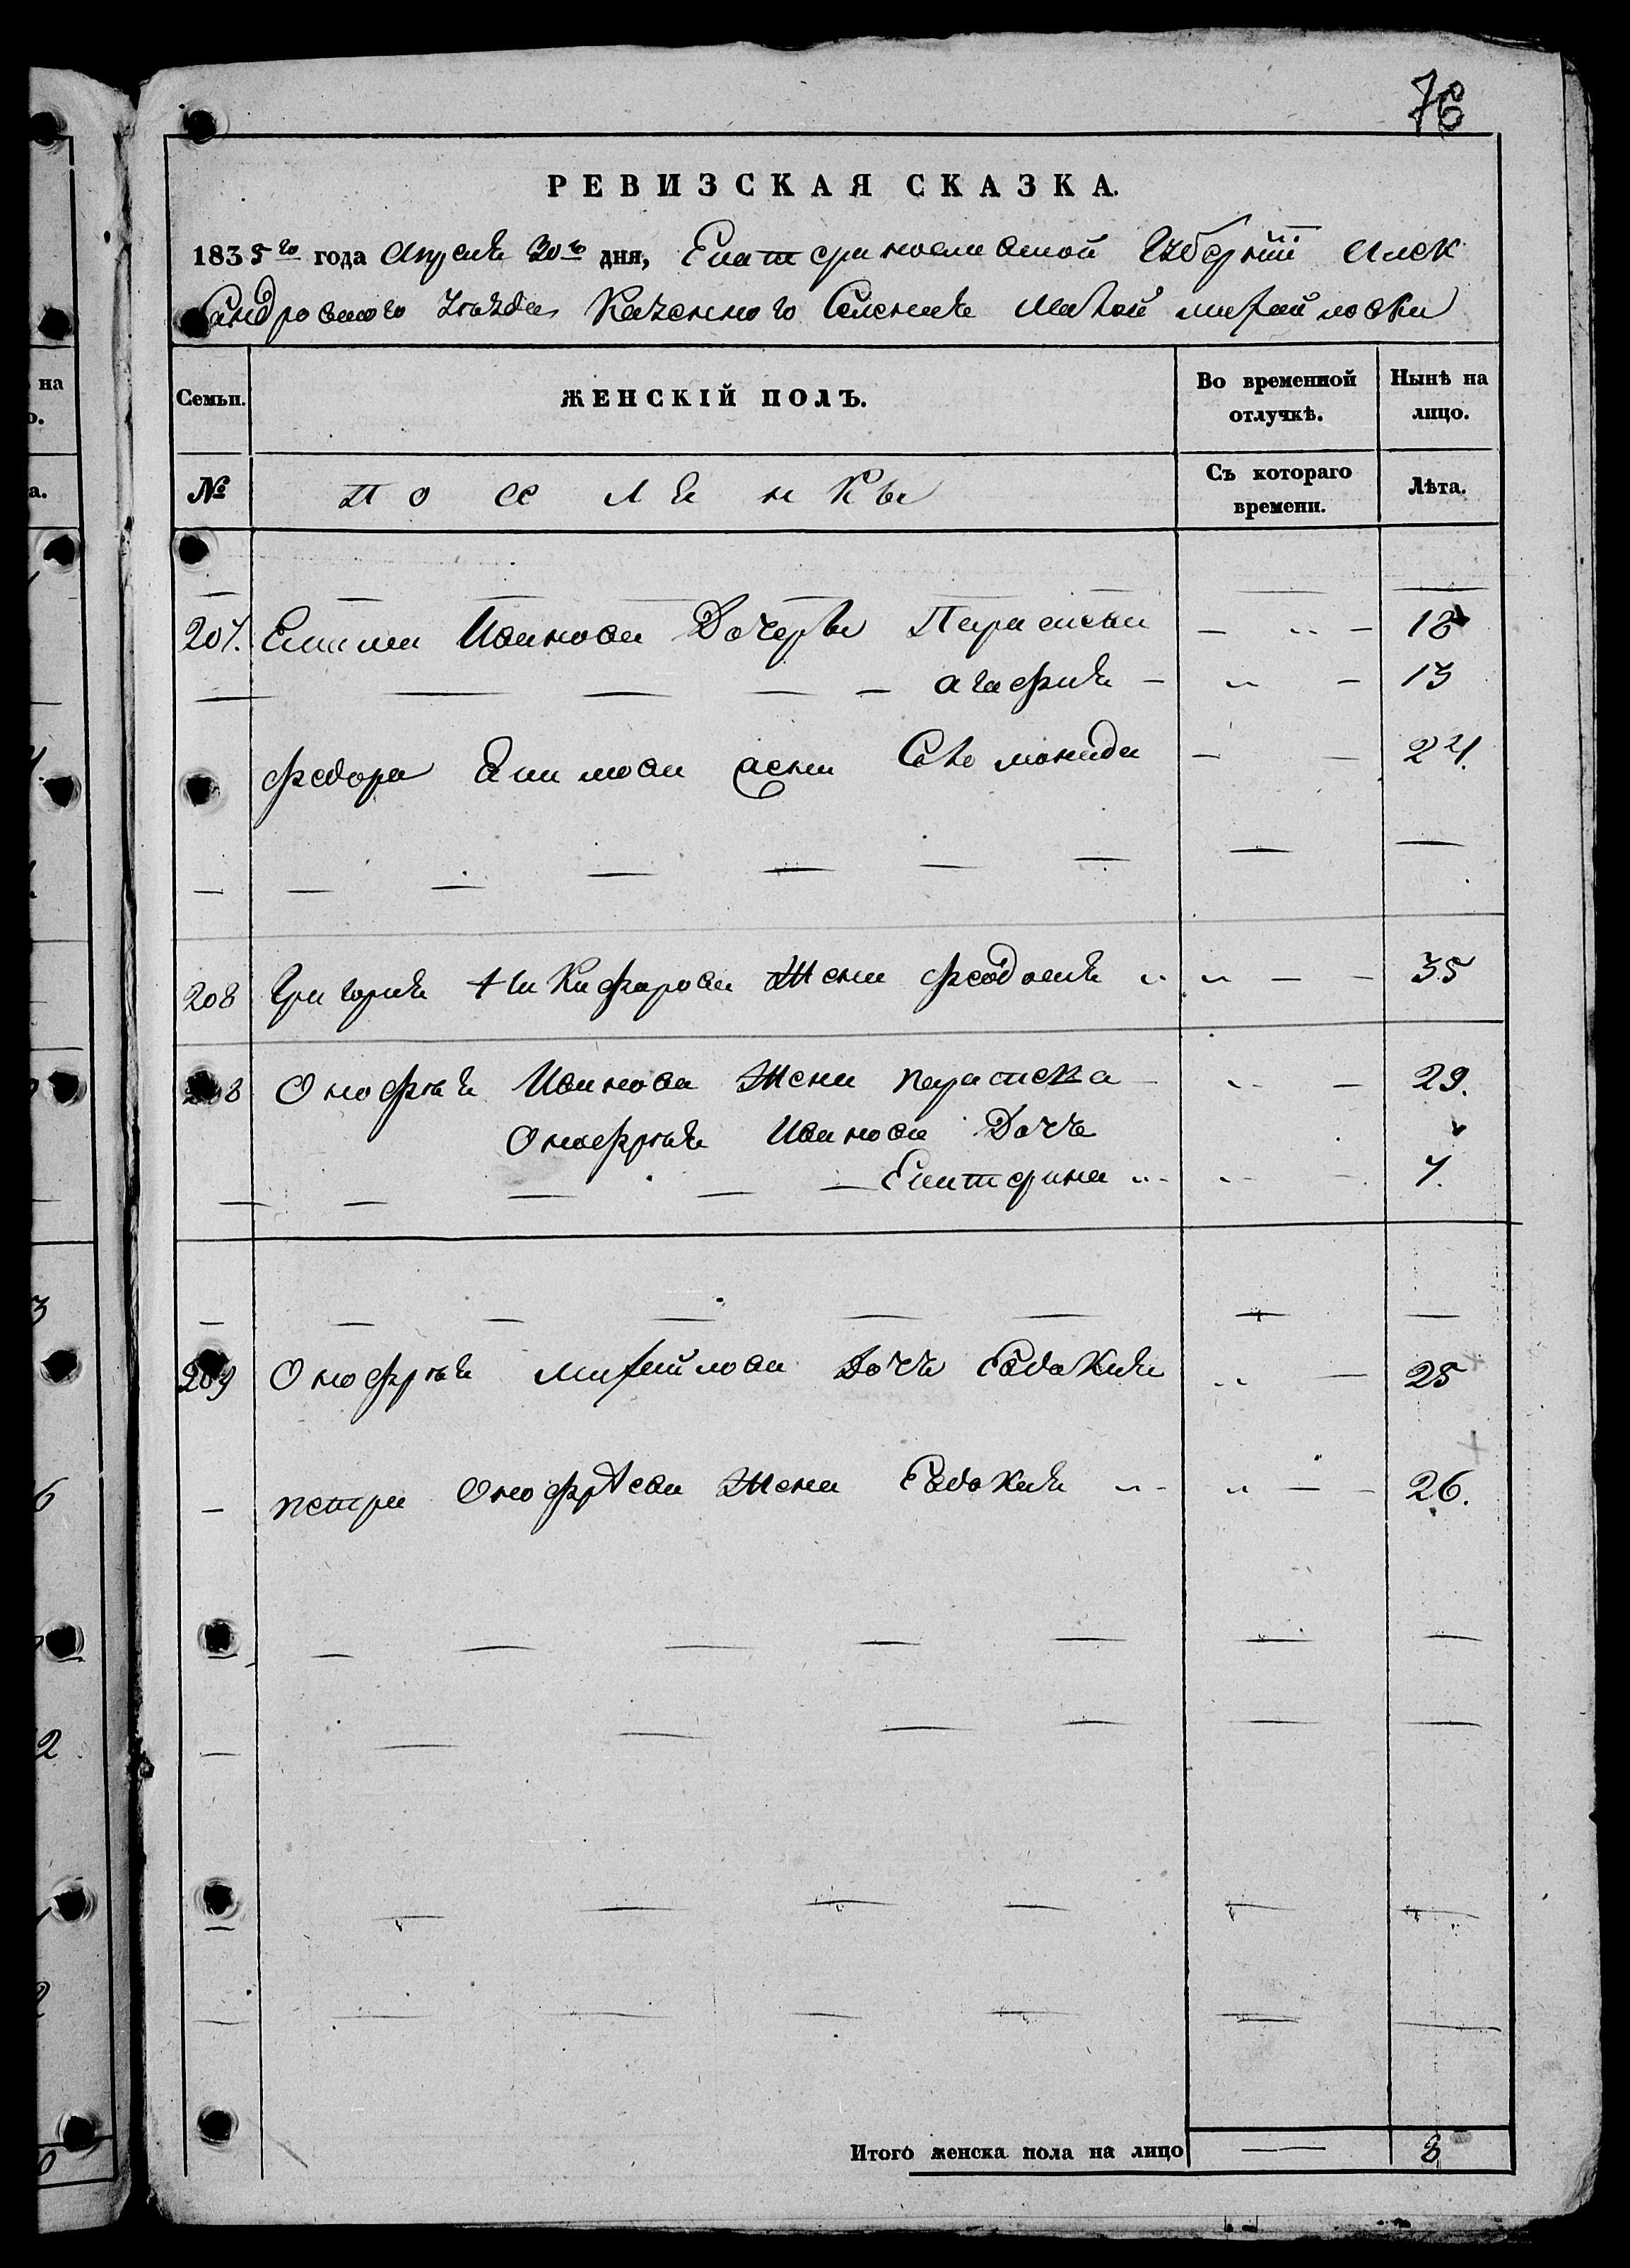 76
РЕВИЗСКАЯ СКАЗКА.
1835го года Апреля 30го дня, Екатеринославской Губернїи Алек
сандровского уѣзда Казенного Селения Малой михайловки
Семьи.
ЖЕНСКІЙ ПОЛЪ.
Во временной отлучкѣ.
Нынѣ на лицо.
№
поселянки
Съ котораго времени.
Лѣта.
207. Екима Иванова Дочери Параскева 18
агафия 13
федора Екимова жена Соломонида 24.
208 Григория Никифорова Жена феодосия 35
208 Онофрѣя Иванова Жена параскева 29.
Онофрѣя Иванова Дочь
Екатерина 7.
209 Онофрѣя михайлова Дочь Евдокия 25
петра Онофрѣева Жена Евдокия 26.
Итого женска пола на лицо 8